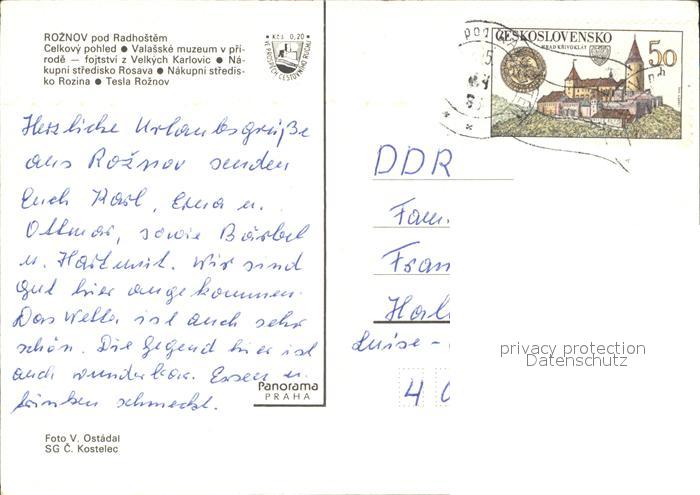 ROŽNOV pod Radhoštěm
Celkový pohled ● Valašské muzeum v pří-
rodě — fojtství z Velkých Karlovic ● Ná-
kupní středisko Rosava ● Nákupní středis-
ko Rozina ● Tesla Rožnov
Kčs 0,20
VE PROSPĚCH CESTOVNÍHO RUCHU
ČESKOSLOVENSKO
HRAD KŘIVOKLÁT
50 h
Herzliche Urlaubsgrüße
aus Rožnov senden
Euch Karl, Erna u.
Ottmar, sowie Bärbel
u. Hartmut. Wir sind
gut hier angekommen.
Das Wetter ist auch sehr
schön. Die Gegend hier ist
auch wunderbar. Essen u.
trinken schmeckt.
DDR
Fam.
Fran
Hal
Luise-
4
Panorama
PRAHA
Foto V. Ostádal
SG Č. Kostelec
privacy protection
Datenschutz